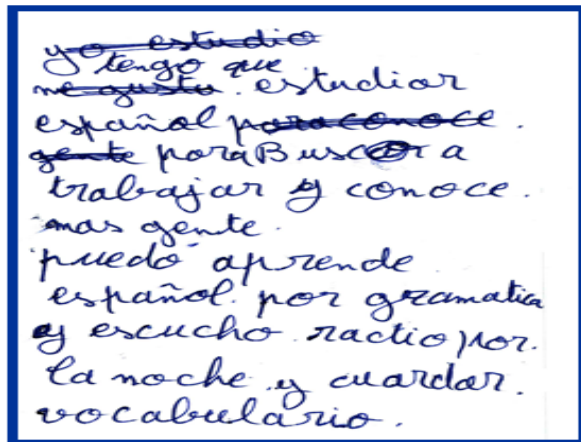 yo estudio
tengo que
me gusta. estudiar
español para conoce.
gente para Buscar a
trabajar y conoce.
mas gente.
puedo aprende
español. por gramatica
y escucho radio por.
la noche y cuardar.
vocabulario.